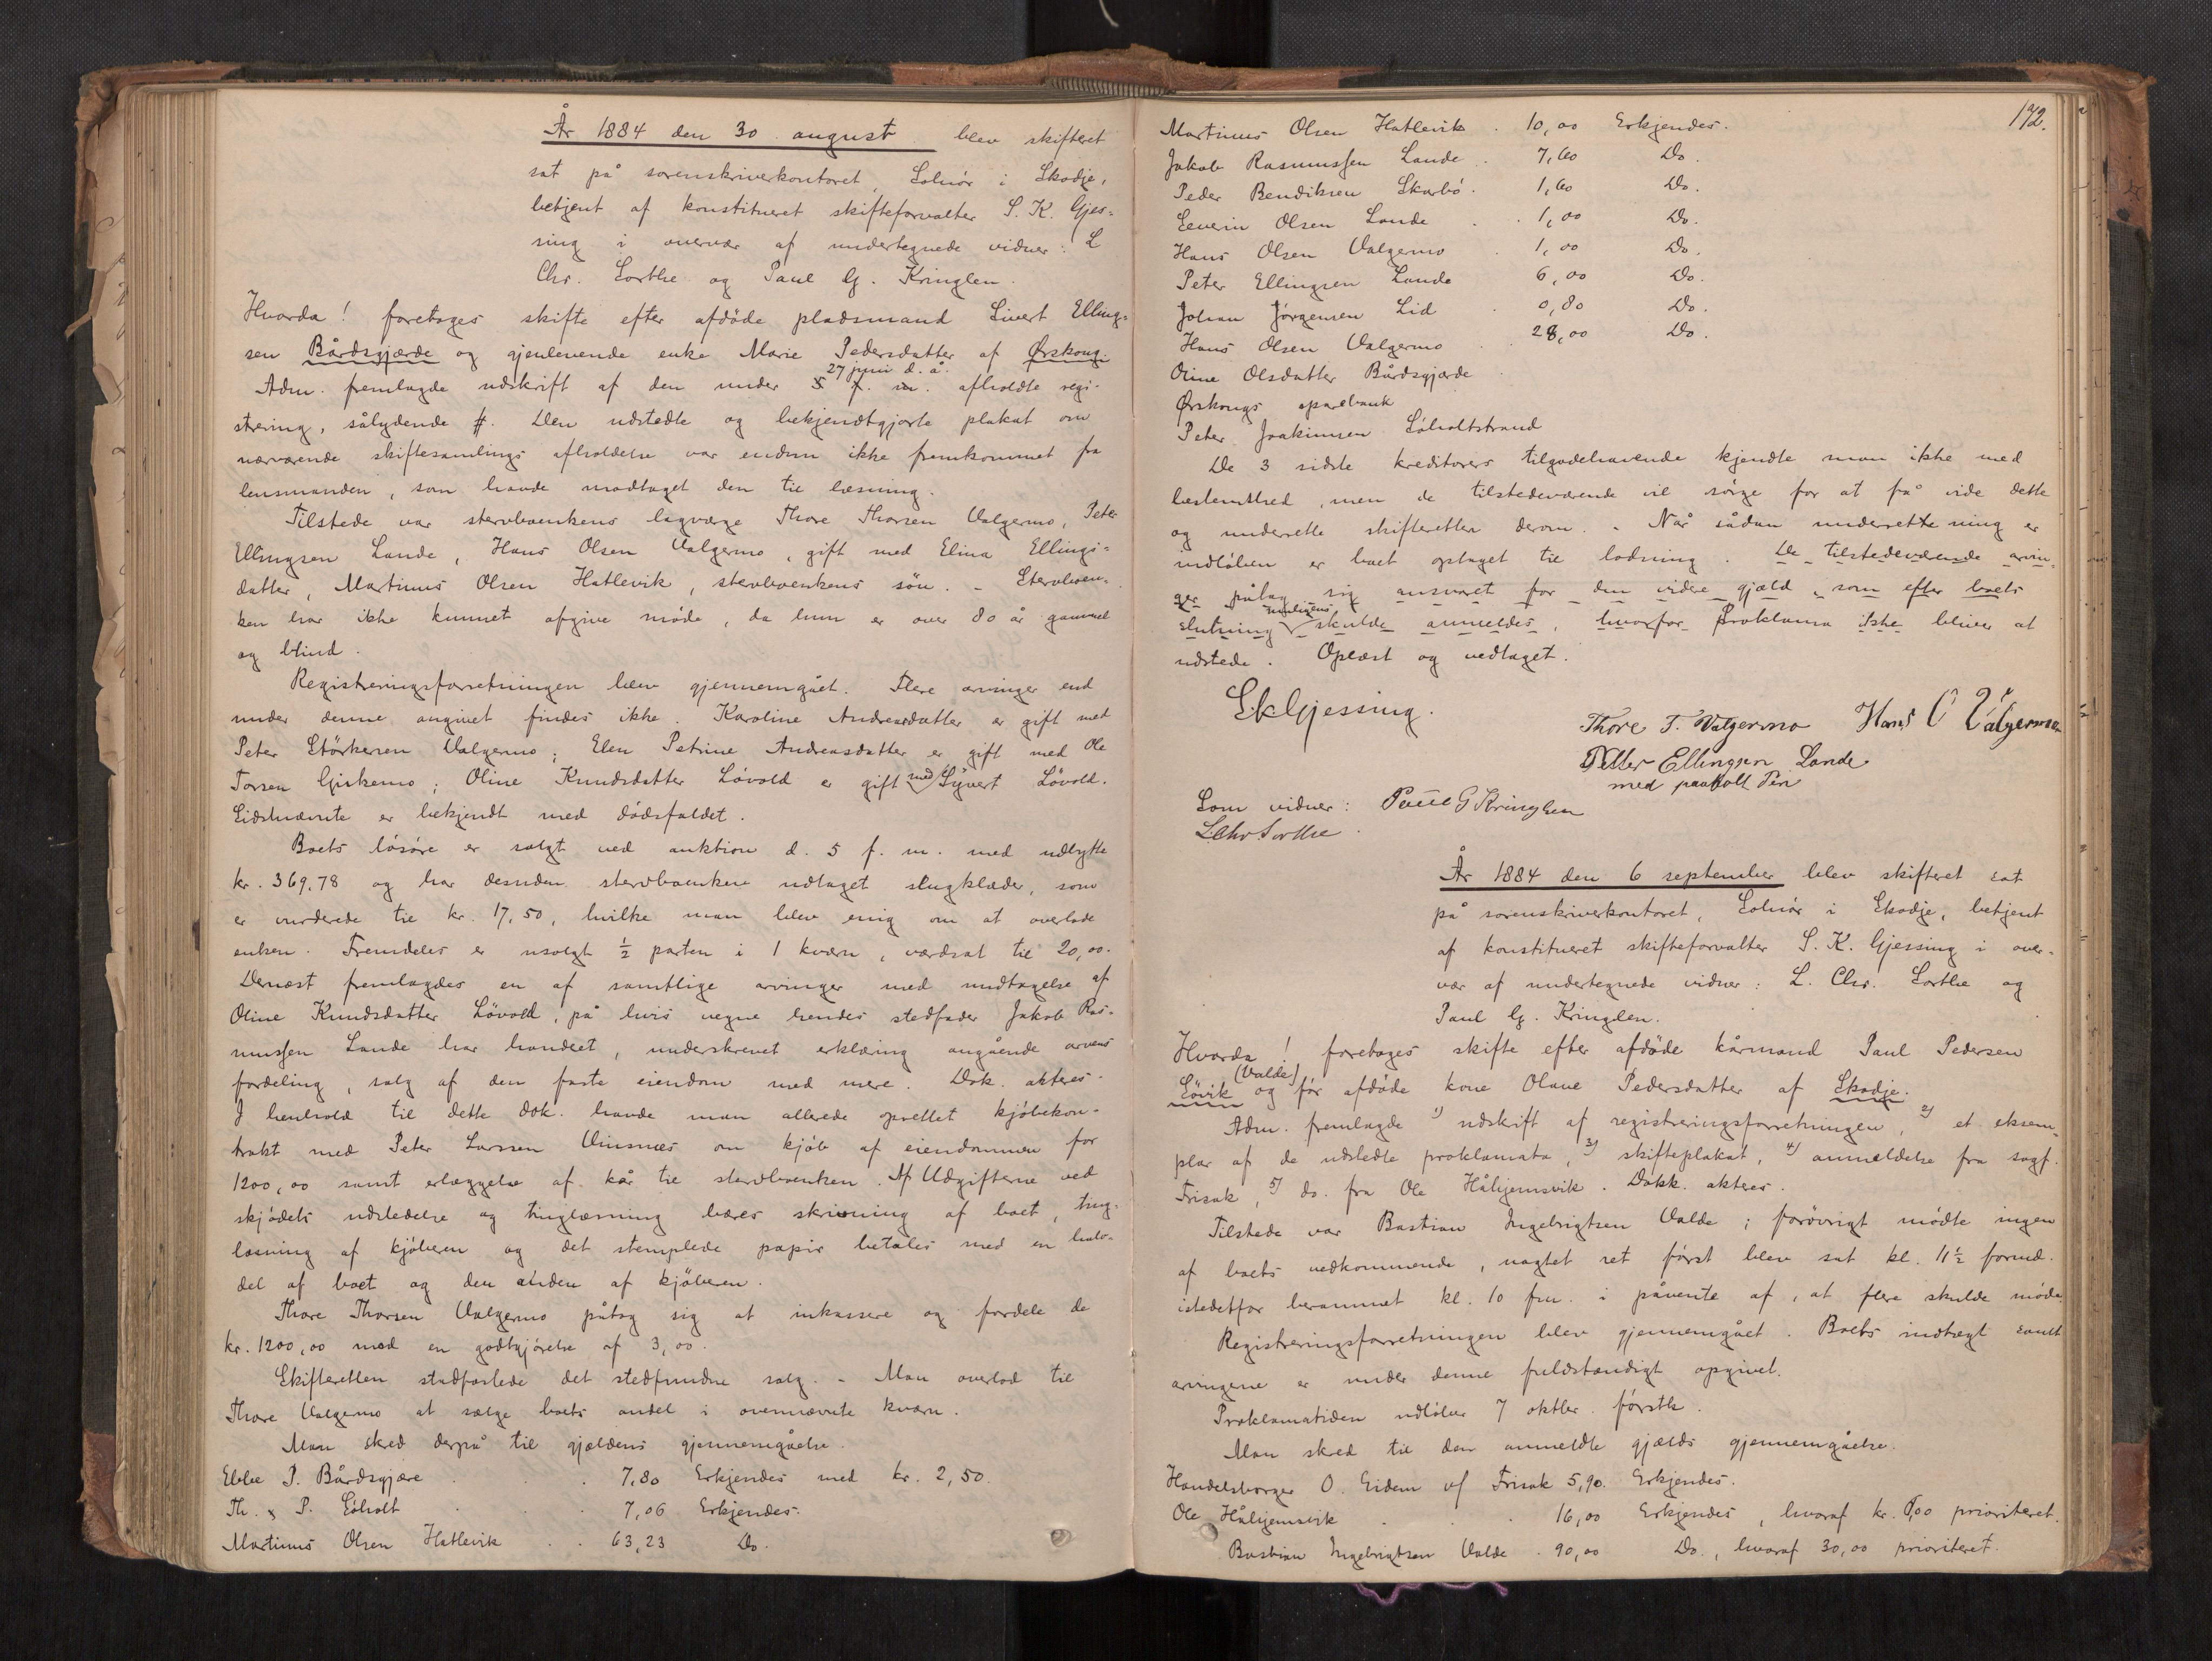 År 1884 den 30 august blev skifteret
sat på sorenskriverkontoret, Solnör i Skodje,
betjent af konstitueret skifteforvalter S. K. Gjes-
sing i overvær af undertegnede vidner: L
Chr. Sorthe og Paul G. Kringlen.
Hvorda! foretoges skifte efter afdöde pladsmand Sivert Elling-
sen Bårdsgjærde og gjenlevende enke Marie Pedersdatter af Ørskoug.
27 juni d. å.
Adm. fremlagde udskrift af den under 5 f. m. afholdte regi-
strering, sålydende #. Den udstedte og bekjendtgjorte plakat om
nærværende skiftesamlings afholdelse var endnu ikke fremkommet fra
lensmanden, som havde modtaget den til læsning.
Tilstede var stervboenkens lagværge Thore Thorsen Valgermo, Peter
Ellingsen Lande, Hans Olsen Valgermo, gift med Elina Ellings-
datter, Martinus Olsen Hatlevik, stervboenkens sön. – Stervboen-
ken har ikke kunnet afgive möde, da hun er over 80 år gammel
og blind.
Registreringsforretningen blev gjennemgået. Flere arvinger end
under denne angivet findes ikke. Karoline Andreasdatter er gift med
Peter Störkersen Valgermo; Elen Petrine Andreasdatter er gift med Ole
Torsen Gjirkemo; Oline Knudsdatter Lövold er gift med Syvert Lövold.
Sidstnævnte er bekjendt med dödsfaldet.
Boets lösöre er solgt ved auktion d. 5 f. m. med udbytte
kr. 369.78 og har desuden stervboenken udtaget slugklæder, som
er vurderede til kr. 17,50, hvilke man blev enig om at overlade
enken. Fremdeles er usolgt ½ parten i 1 kværn, værdsat til 20,00.
Dernæst fremlagdes en af samtlige arvinger med undtagelse af
Oline Knudsdatter Lövold, på hvis vegne hendes stedfader Jakob Ras-
mussen Lande har handlet, underskrevet erklæring angående arvens
fordeling, salg af den faste eiendom med mere. Dok. akteres.
I henhold til dette dok. havde man allerede oprettet kjöbekon-
trakt med Peter Larssen Vinsnæs om kjöb af eiendommen for
1200,00 samt erlæggelse af kår til stervboenken. Af Udgifterne ved
skjödets udstedelse og tinglæsning bæres skrivning af boet, ting-
læsning af kjöberen og det stemplede papir betales med en halv-
del af boet og den anden af kjöberen.
Thore Thorsen Valgermo påtog sig at inkassere og fordele de
kr. 1200,00 mod en godtgjörelse af 3,00.
Skifteretten stadfæstede det stedfundne salg. – Man overlod til
Thore Valgermo at sælge boets andel i ovennævnte kværn.
Man skred derpå til gjældens gjennemgåelse.
Ebbe P. Bårdsgjære . . 7,80 Erkjendes med kr. 2,50.
Th. & P. Söholt . . 7,06 Erkjendes.
Martinus Olsen Hatlevik . . 63,23 Do.
172.
Martinus Olsen Hatlevik . 10,00 Erkjendes.
Jakob Rasmussen Lande . . 7,60 Do.
Peder Bendiksen Skarbö . 1,60 Do.
Severin Olsen Lande . . 1,00 Do.
Hans Olsen Valgermo . 1,00 Do.
Peter Ellingsen Lande 6,00 Do.
Johan Jörgensen Lid . 0,80 Do.
Hans Olsen Valgermo . . 28,00 Do.
Oline Olsdatter Bårdsgjærde .
Ørskougs sparebank
Peter Joakimsen Söholtstrand
De 3 sidste kreditorers tilgodehavende kjendte man ikke med
bestemthed, men de tilstedeværende vil sörge for at få vide dette
og underrette skifteretten derom. – Når sådan underretning er
indlöben er boet optaget til lodning. De tilstedeværende arvin-
ger påtog sig ansvaret for den videre gjæld, som efter boets
muligens
slutning skulde anmeldes, hvorfor Proklama ikke bliver at
udstede. Oplæst og vedtaget.
SKGjessing.
Thore T. Valgermo Hans O Valgermo
Petter Ellingsen Lande
med paaholt Pen
Som vidner: Paul G Kringlen
LChrSorthe.
År 1884 den 6 september blev skifteret sat
på sorenskriverkontoret, Solnör i Skodje, betjent
af konstitueret skifteforvalter S. K. Gjessing i over-
vær af undertegnede vidner: L. Chr. Sorthe og
Paul G. Kringlen.
Hvorda! foretoges skifte efter afdöde kårmand Paul Pedersen
(Valde)
Sövik og för afdöde kone Olave Pedersdatter af Skodje.
Adm. fremlagde 1) udskrift af registreringsforretningen, 2) et eksem-
plar af de udstedte proklamata, 3) skifteplakat, 4) anmeldelse fra sagf.
Frisak, 5) do. fra Ole Håhjemsvik. Dokk. akteres.
Tilstede var Bastian Ingebrigtsen Valde; forövrigt mödte ingen
af boets vedkommende, uagtet ret först blev sat kl. 11½ formd.
istedetfor berammet kl. 10 fm. i påvente af, at flere skulde möde.
Registreringsforretningen blev gjennemgået. Boets indtægt samt
arvingene er under denne fuldstændigt opgivet.
Proklamatiden udlöber 7 oktbr. förstk.
Man skred til den anmeldte gjælds gjennemgåelse.
Handelsborger O. Eidem v/ Frisak 5,90. Erkjendes.
Ole Håhjemsvik . . . 16,00 Erkjendes, hvoraf kr. 8,00 prioriteret.
Bastian Ingebrigtsen Valde . 90,00 Do., hvoraf 30,00 prioriteret.